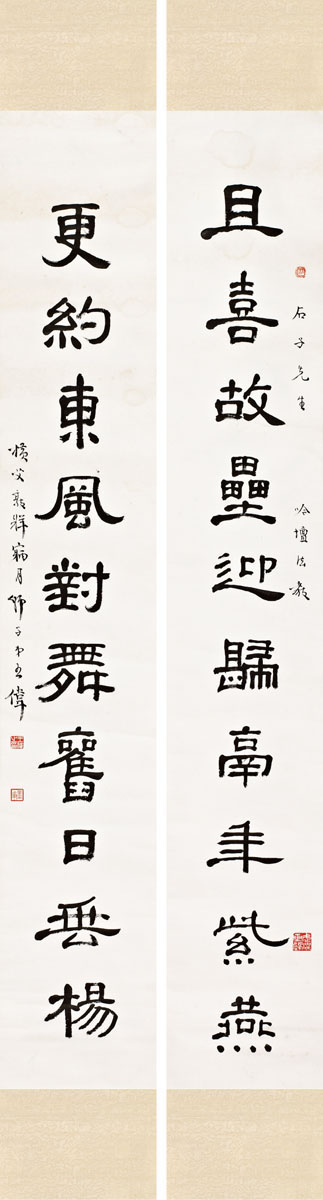 石子先生 吟壇法教
且喜故壘迎歸鬲年紫燕
更約東風對舞舊日垂楊
弟王偉